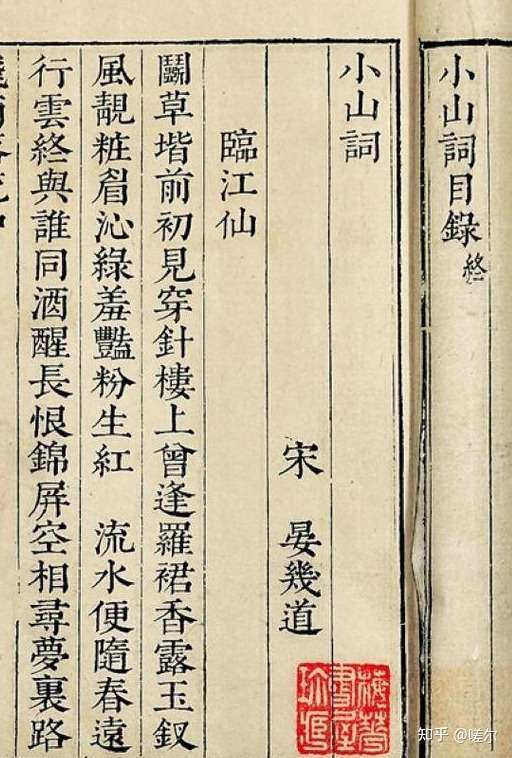 小山詞目錄終
小山詞
宋 晏幾道
臨江仙
鬭草堦前初見穿針樓上曾逢羅裙香露玉釵
風靚粧眉沁綠羞豔粉生紅 流水便隨春遠
行雲終與誰同酒醒長恨錦屏空相尋夢裏路
知乎 @嗟尔